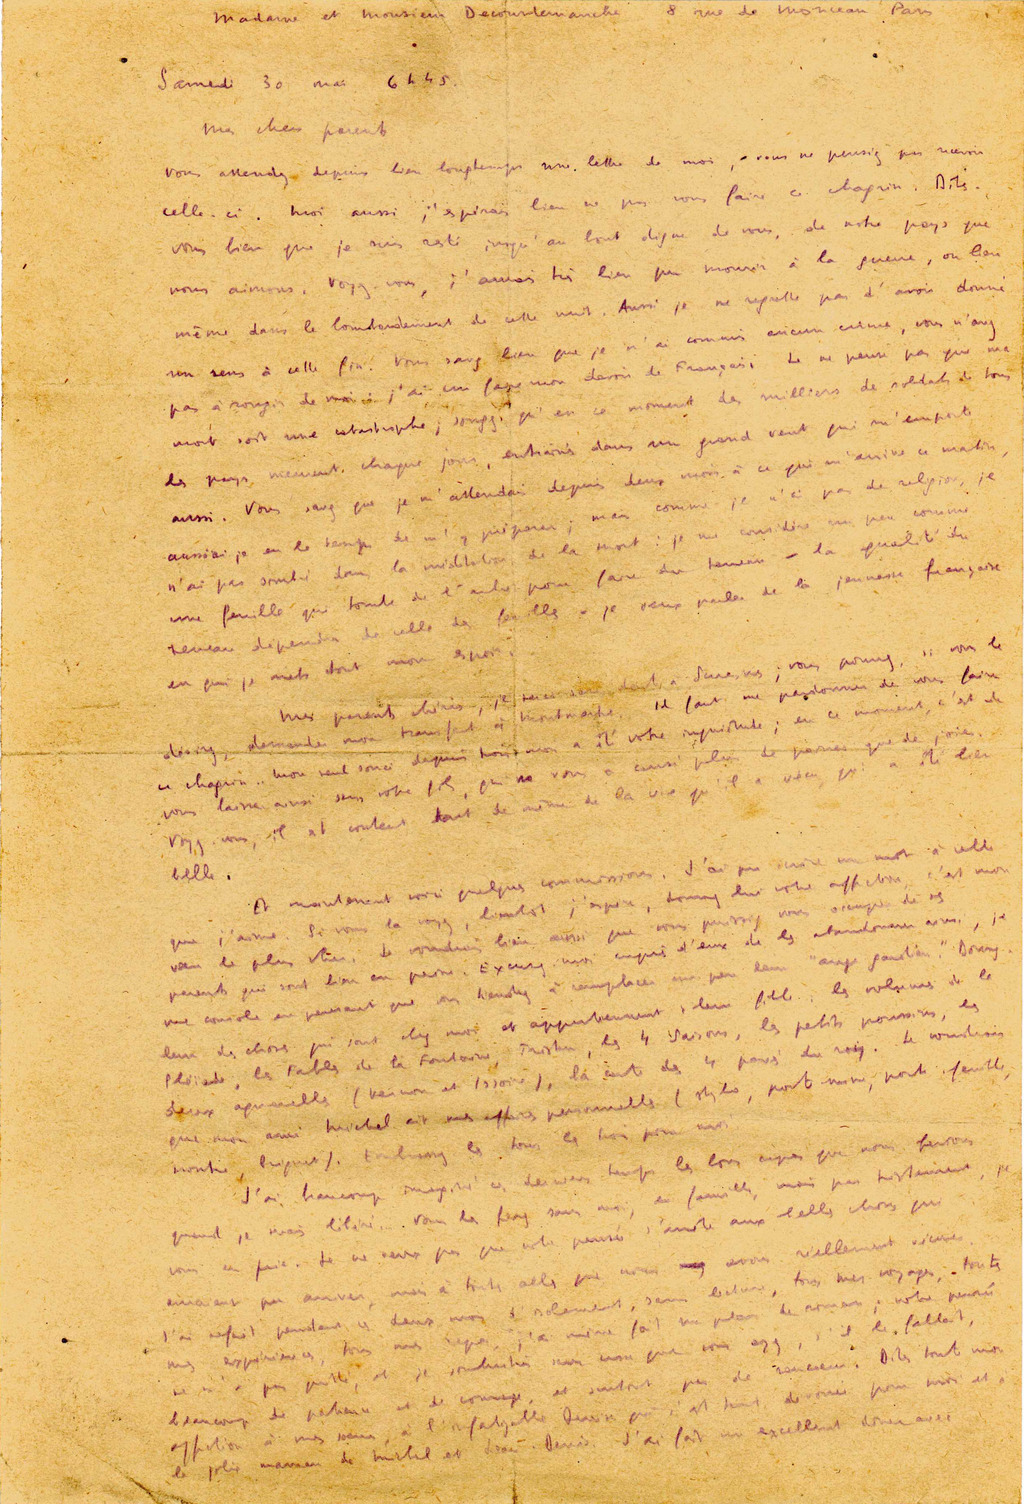 Madame et Monsieur Decourdemanche 8 rue de Monceau Paris
Samedi 30 mai 6h45.
Mes chers parents
Vous attendez depuis bien longtemps une lettre de moi, vous ne pensiez pas recevoir
celle-ci. Moi aussi j'espérais bien ne pas vous faire ce chagrin. Dites-
vous bien que je suis resté jusqu'au bout digne de vous, de notre pays que
nous aimons. Voyez-vous, j'aurais très bien pu mourir à la guerre, ou bien
même dans le bombardement de cette nuit. Aussi je ne regrette pas d'avoir donné
un sens à cette fin. Vous savez bien que je n'ai commis aucun crime, vous n'avez
pas à rougir de moi : j'ai su faire mon devoir de Français. Je ne pense pas que ma
mort soit une catastrophe ; songez qu'en ce moment des milliers de soldats de tous
les pays meurent chaque jour, entraînés dans un grand vent qui m'emporte
aussi. Vous savez que je m'attendais depuis deux mois à ce qui m'arrive ce matin,
aussi ai-je eu le temps de m'y préparer ; mais comme je n'ai pas de religion, je
n'ai pas sombré dans la méditation de la mort : je me considère un peu comme
une feuille qui tombe de l'arbre pour faire du terreau - la qualité du
terreau dépendra de celle des feuilles - je veux parler de la jeunesse française
en qui je mets tout mon espoir.
Mes parents chéris, je serai sans doute à Suresnes ; vous pouvez, si vous le
désirez, demander mon transfert à Montmartre. Il faut me pardonner de vous faire
ce chagrin. Mon seul souci depuis trois mois a été votre inquiétude ; en ce moment, c'est de
vous laisser ainsi sans votre fils, qui vous a causé plus de peines que de joies.
Voyez-vous, il est content tout de même de la vie qu'il a vécu, qui a été bien
belle.
Et maintenant voici quelques commissions. J'ai pu écrire un mot à celle
que j'aime. Si vous la voyez, bientôt j'espère, donnez lui votre affection, c'est mon
vœu le plus cher. Je voudrais bien aussi que vous puissiez vous occuper de ses
parents qui sont bien en peine. Excusez-moi auprès d'eux de les abandonner ainsi, je
me console en pensant que vous tiendrez à remplacer un peu leur "ange gardien". Donnez-
leur des choses qui sont chez moi et appartiennent à leur fille : les volumes de la
Pléiade, les Fables de la Fontaine, Tristan, les 4 saisons, les petits poussins, les
deux aquarelles (Vernon et Issoire), la carte des 4 pavés du roy. Je voudrais
que mon ami Michel ait mes affaires personnelles (stylo, porte-mine, portefeuille,
montre, briquet). Embrassez les tous les trois pour moi.
J'ai beaucoup imaginé ces derniers temps les bons repas que nous ferions
quand je serais libéré. Vous les ferez sans moi, en famille, mais pas tristement, je
vous en prie. Je ne veux pas que votre pensée s'arrête aux belles choses qui
auraient pu arriver, mais à toutes celles que nous avons réellement vécues.
J'ai refait pendant ces deux mois d'isolement, sans lecture, tous mes voyages, toutes
mes expériences, tous mes repas, j'ai même fait un plan de roman ; votre pensée
ne m'a pas quitté, et je souhaite que vous ayez, s'il le fallait,
beaucoup de patience et de courage, et surtout pas de rancœur. Dites tout mon
affection à mes sœurs, à l'infatigable Denise qui s'est tant dévouée pour moi et à
la jolie maman de Michel et Denis. J'ai fait un excellent dîner avec